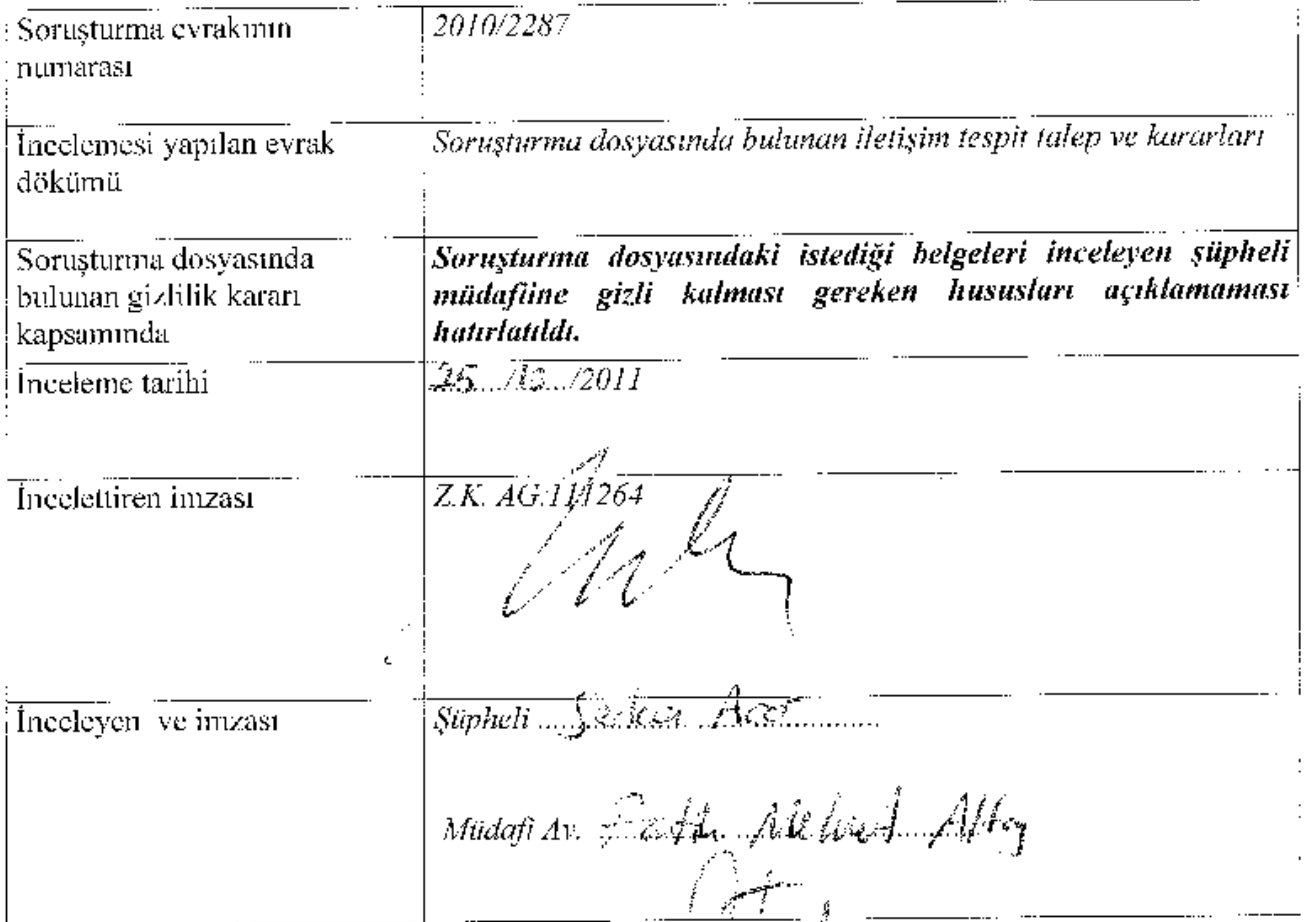 Soruşturma evrakının
numarası
2010/2287
İncelemesi yapılan evrak
dökümü
Soruşturma dosyasında bulunan iletişim tespit talep ve kararları
Soruşturma dosyasında
bulunan gizlilik kararı
kapsamında
Soruşturma dosyasındaki istediği belgeleri inceleyen şüpheli
müdafiine gizli kalması gereken hususları açıklamaması
hatırlatıldı.
İnceleme tarihi
25.../10.../2011
İncelettiren imzası
Z.K. AG.111264
İnceleyen ve imzası
Şüpheli ..... Acar ..........
Müdafi Av. Fatih Mehmet Altay